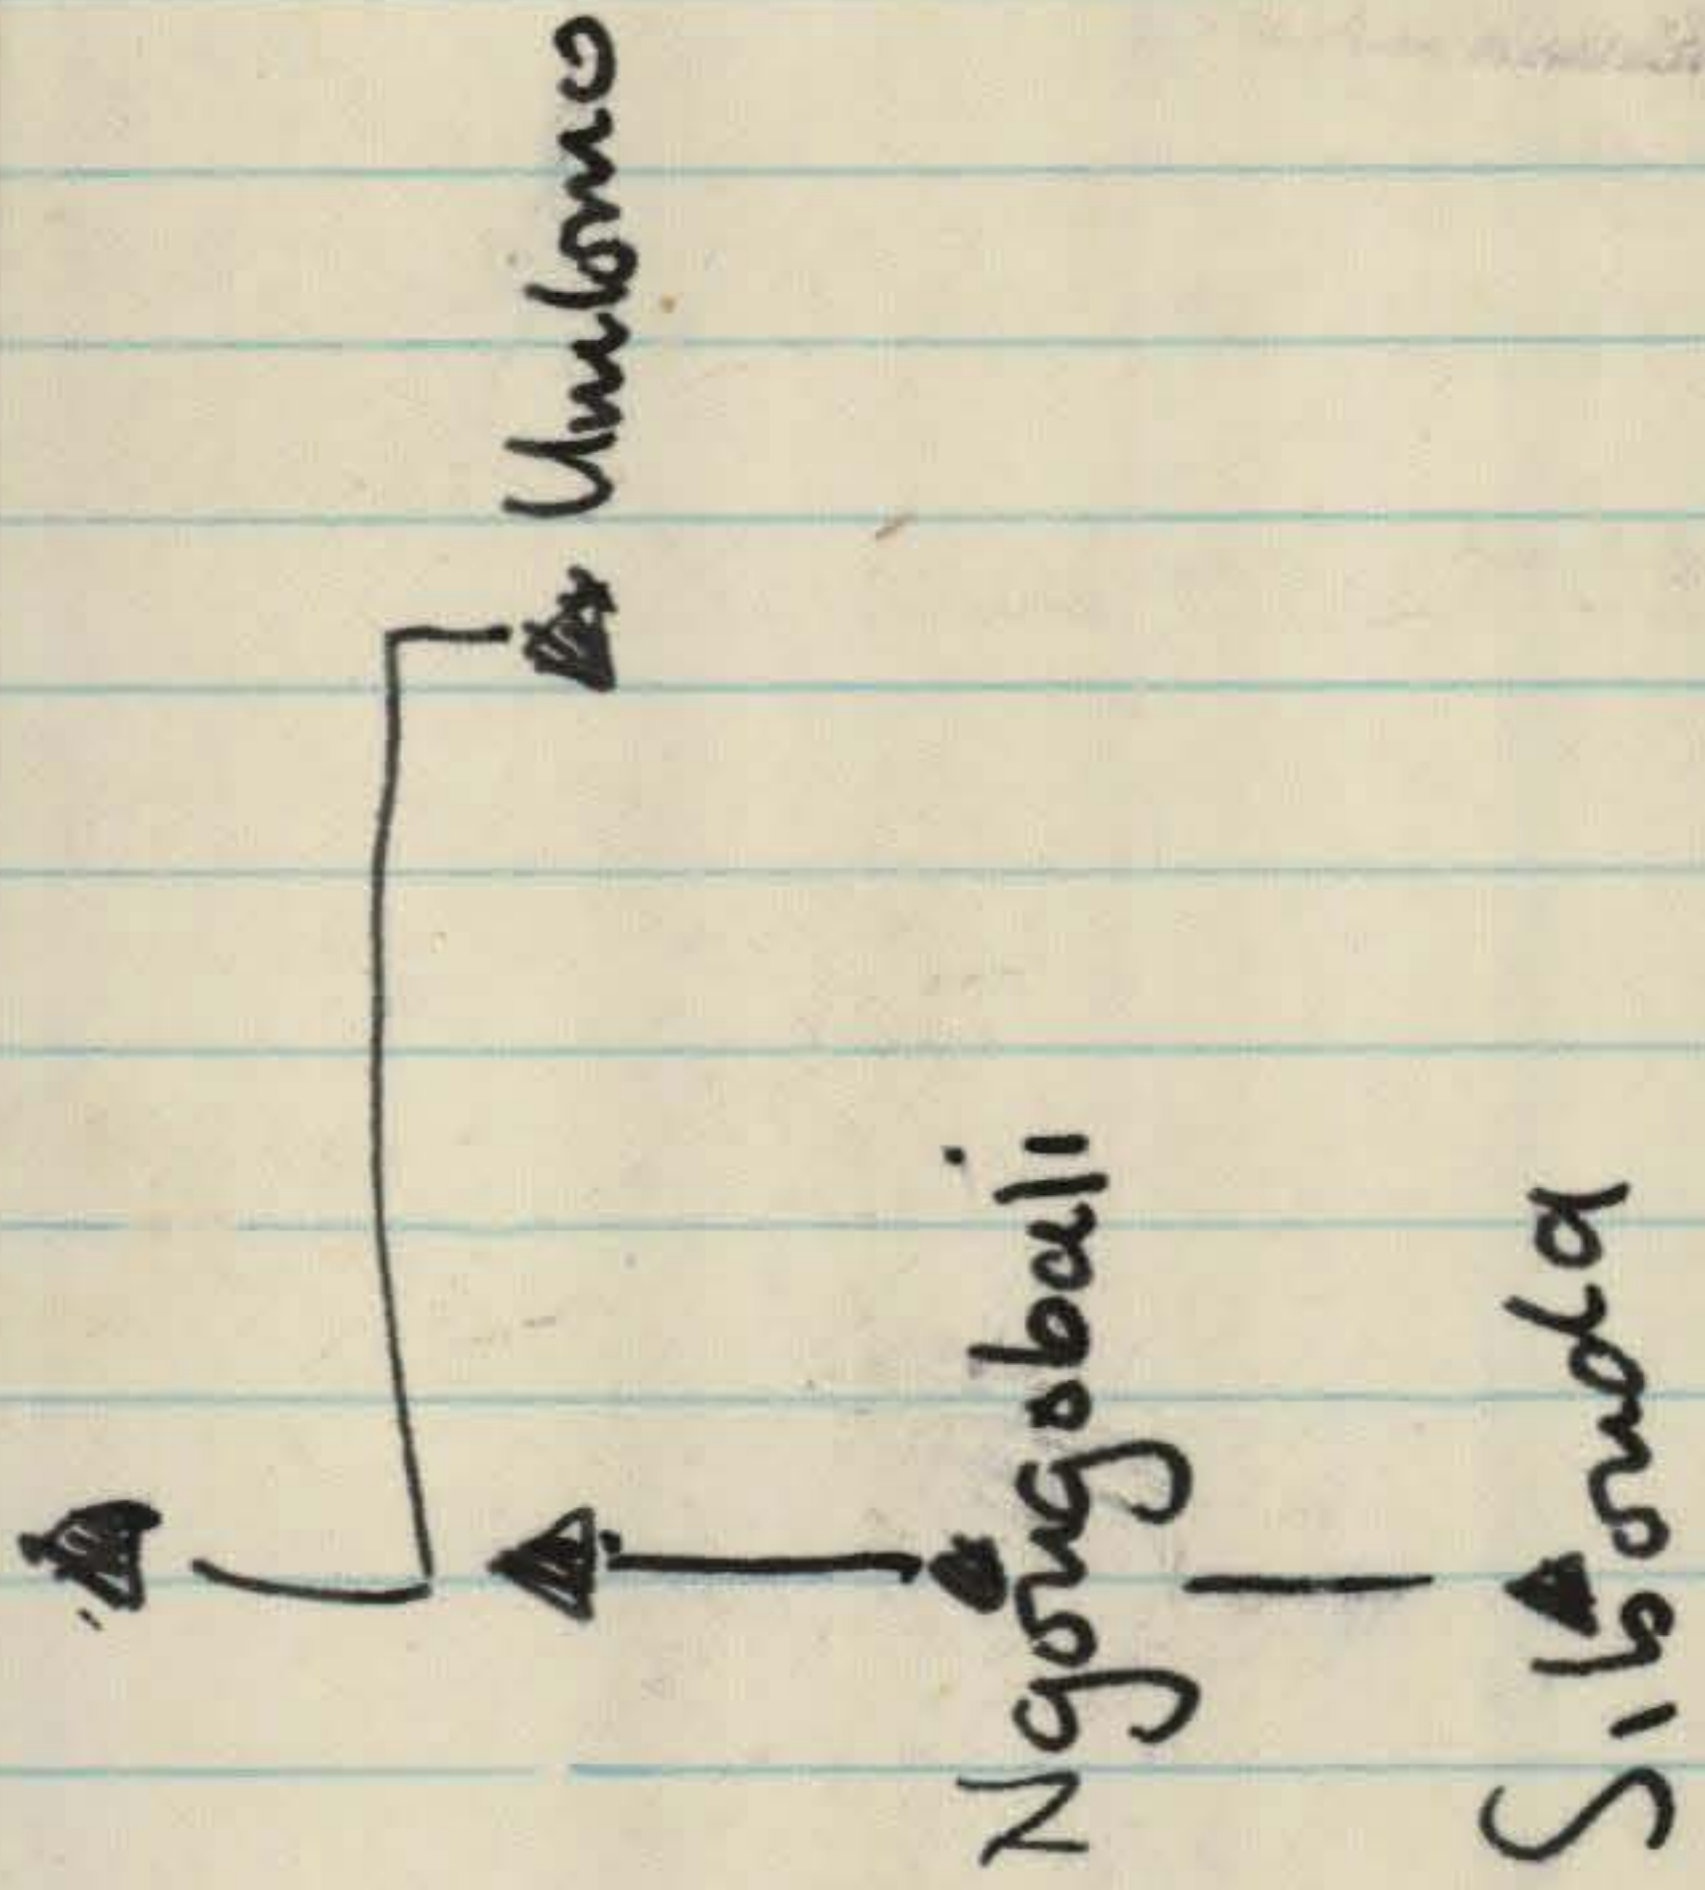 Umlomo
Ngongobali
Sibonda